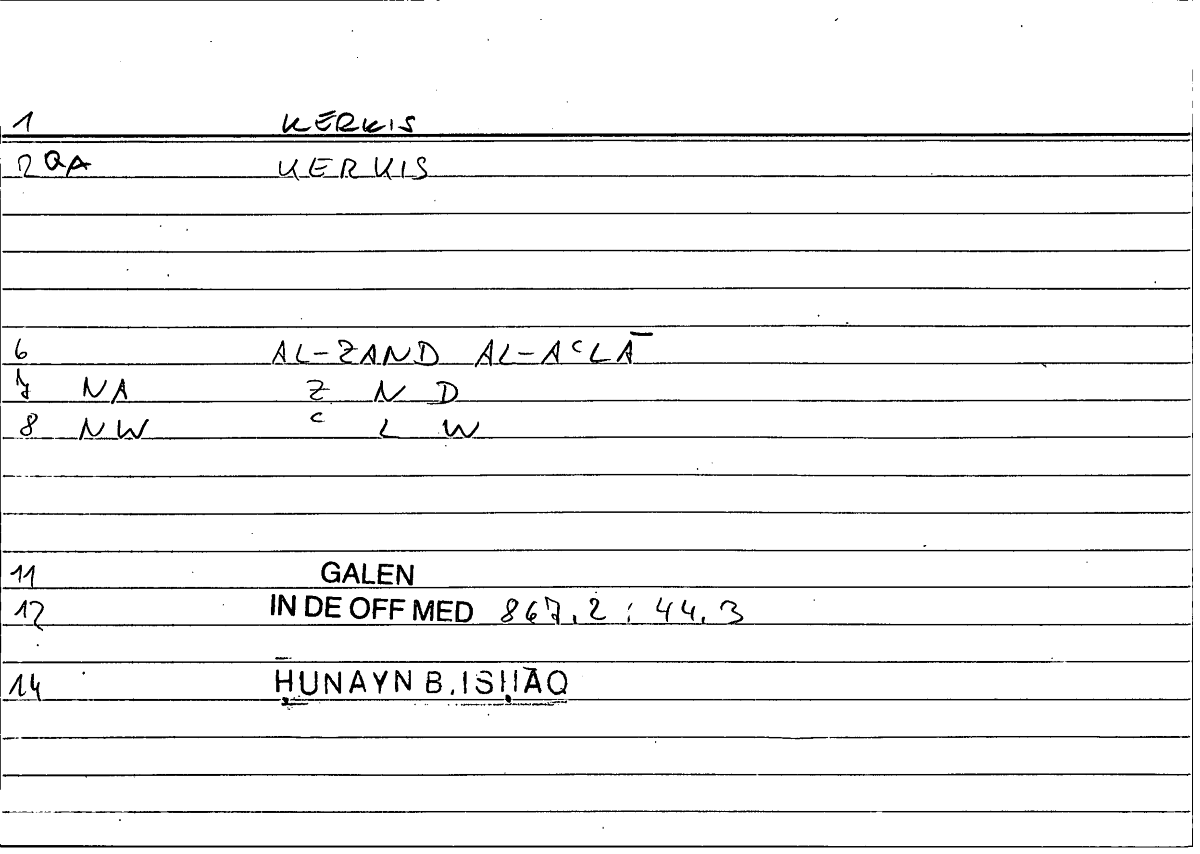 1 KERKIS
2 QA KERKIS
6 AL-ZAND AL-AᶜLĀ
7 NA Z N D
8 NW ᶜ L W
11 GALEN
12 IN DE OFF MED 867.2 : 44.3
14 ḤUNAYN B. ISḤĀQ